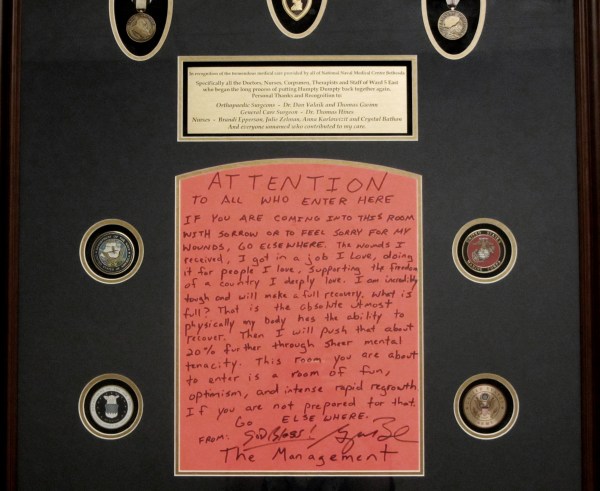 In recognition of the tremendous medical care provided by all of National Naval Medical Center Bethesda.
Specifically all the Doctors, Nurses, Corpsmen, Therapists and Staff of Ward 5 East
who began the long process of putting Humpty Dumpty back together again.
Personal Thanks and Recognition to:
Orthopaedic Surgeons - Dr. Dan Valnik and Thomas
General Care Surgeon - Dr. Thomas Hines
Nurses - Brandi Epperson, Julie Zelman, Anna and Crystal Button
And everyone unnamed who contributed to my care.
ATTENTION
TO ALL WHO ENTER HERE
IF YOU ARE COMING INTO THIS ROOM
WITH SORROW OR TO FEEL SORRY FOR MY
WOUNDS, GO ELSEWHERE. The wounds I
received, I got in a job I love, doing
it for people I love, supporting the freedom
of a country I deeply love. I am incredibly
tough and will make a full recovery. What is
full? That is the absolute utmost
physically my body has the ability to
recover. Then I will push that about
20% further through sheer mental
tenacity. This room you are about
to enter is a room of fun,
optimism, and intense rapid regrowth.
If you are not prepared for that.
GO ELSEWHERE.
FROM: GOD BLESS!
The Management
UNITED STATES